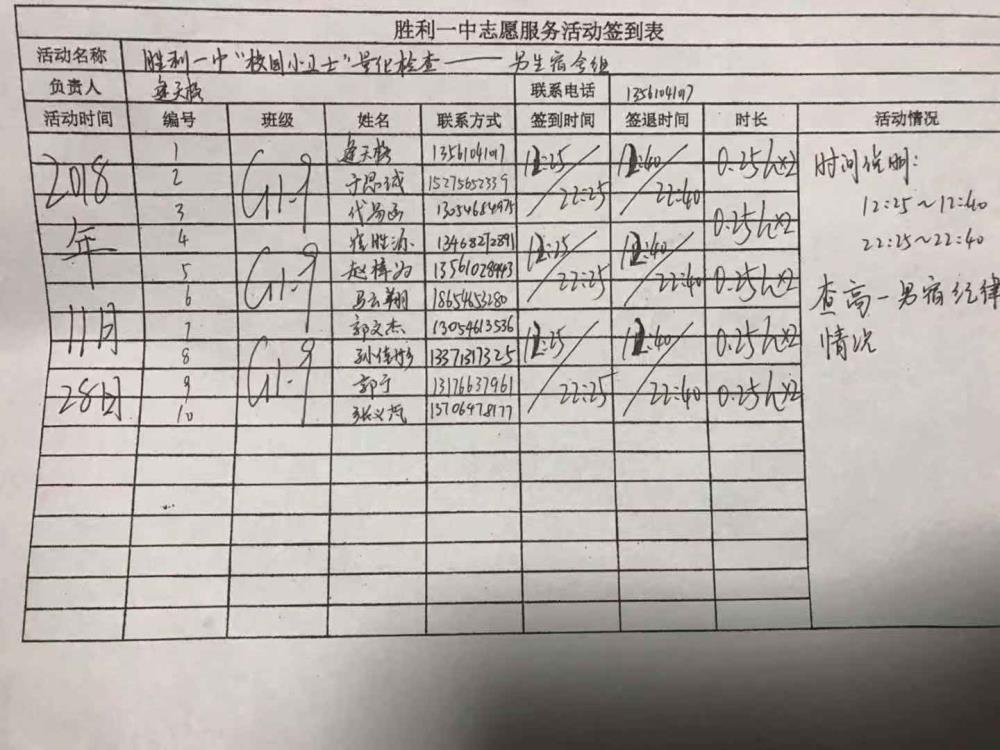 胜利一中志愿服务活动签到表
活动名称 胜利一中“校园小卫士”量化检查——男生宿舍组
负责人 联系电话 13561041017
活动时间 编号 班级 姓名 联系方式 签到时间 签退时间 时长 活动情况
2018年11月28日
1 G1.9 13561041017 12:25/22:25 12:40/22:40 0.25h×2
2 于思诚 15275652339
3 代易函 13054684975 0.25h×2
4 13468272891 12:25/22:25 12:40/22:40
5 G1.9 13561028943 0.25h×2
6 马云翔 18654653280
7 郭文杰 13054613536 12:25/22:25 12:40/22:40 0.25h×2
8 G1.9 13371317325
9 郭宁 13176637961 0.25h×2
10 张义 15706478177
时间说明:
12:25~12:40
22:25~22:40
查高一男宿纪律
情况